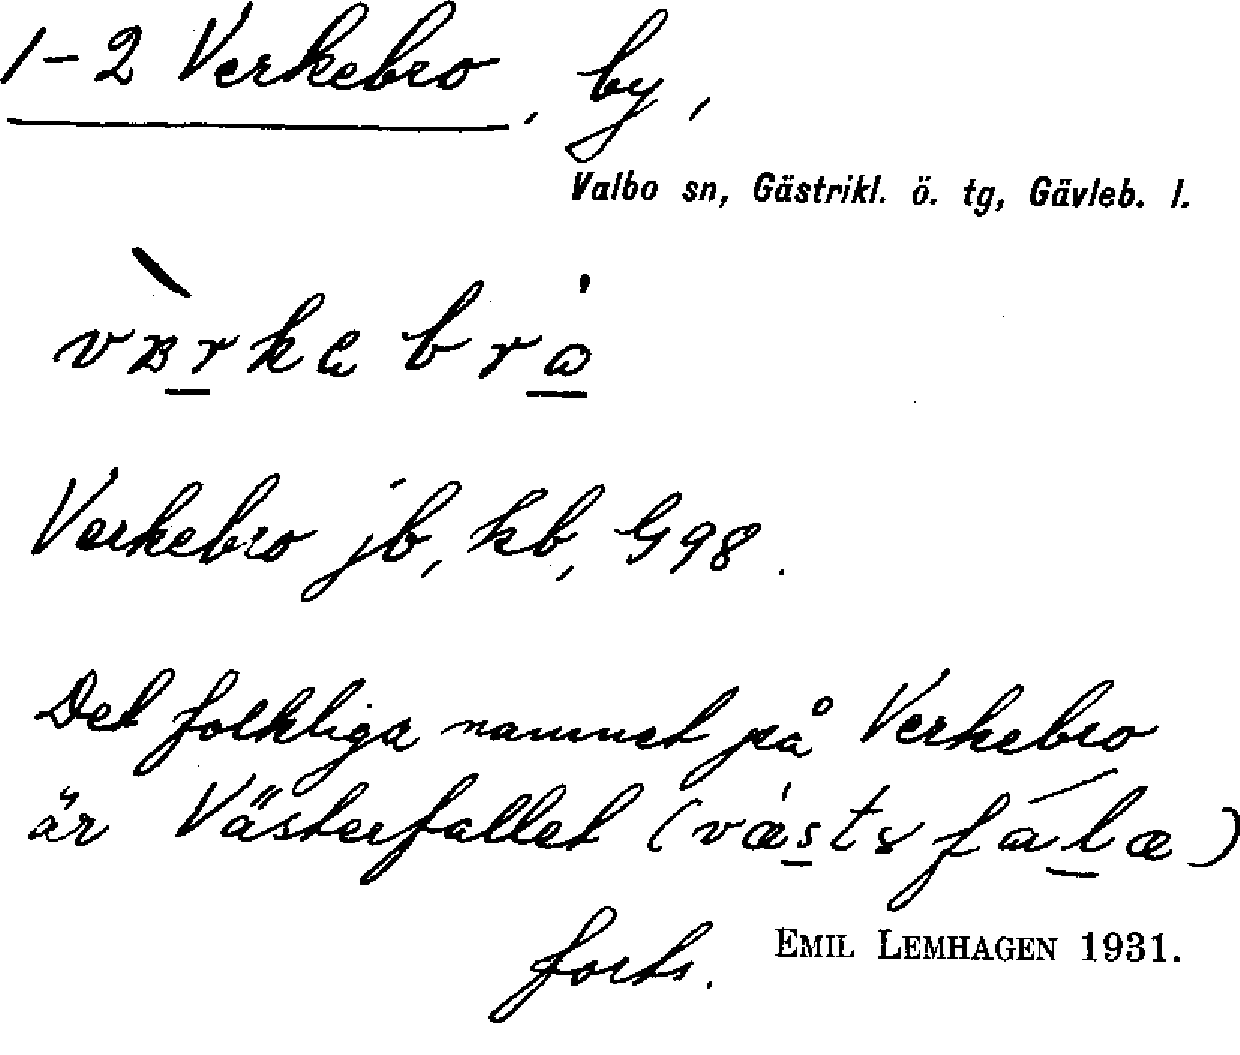 1-2 Verkebro, by,
Valbo sn, Gästrikl. ö. tg, Gävleb. l.
Verkebro jb, kb, G98.
Det folkliga namnet på Verkebro
är Västerfallet (
forts.
EMIL LEMHAGEN 1931.